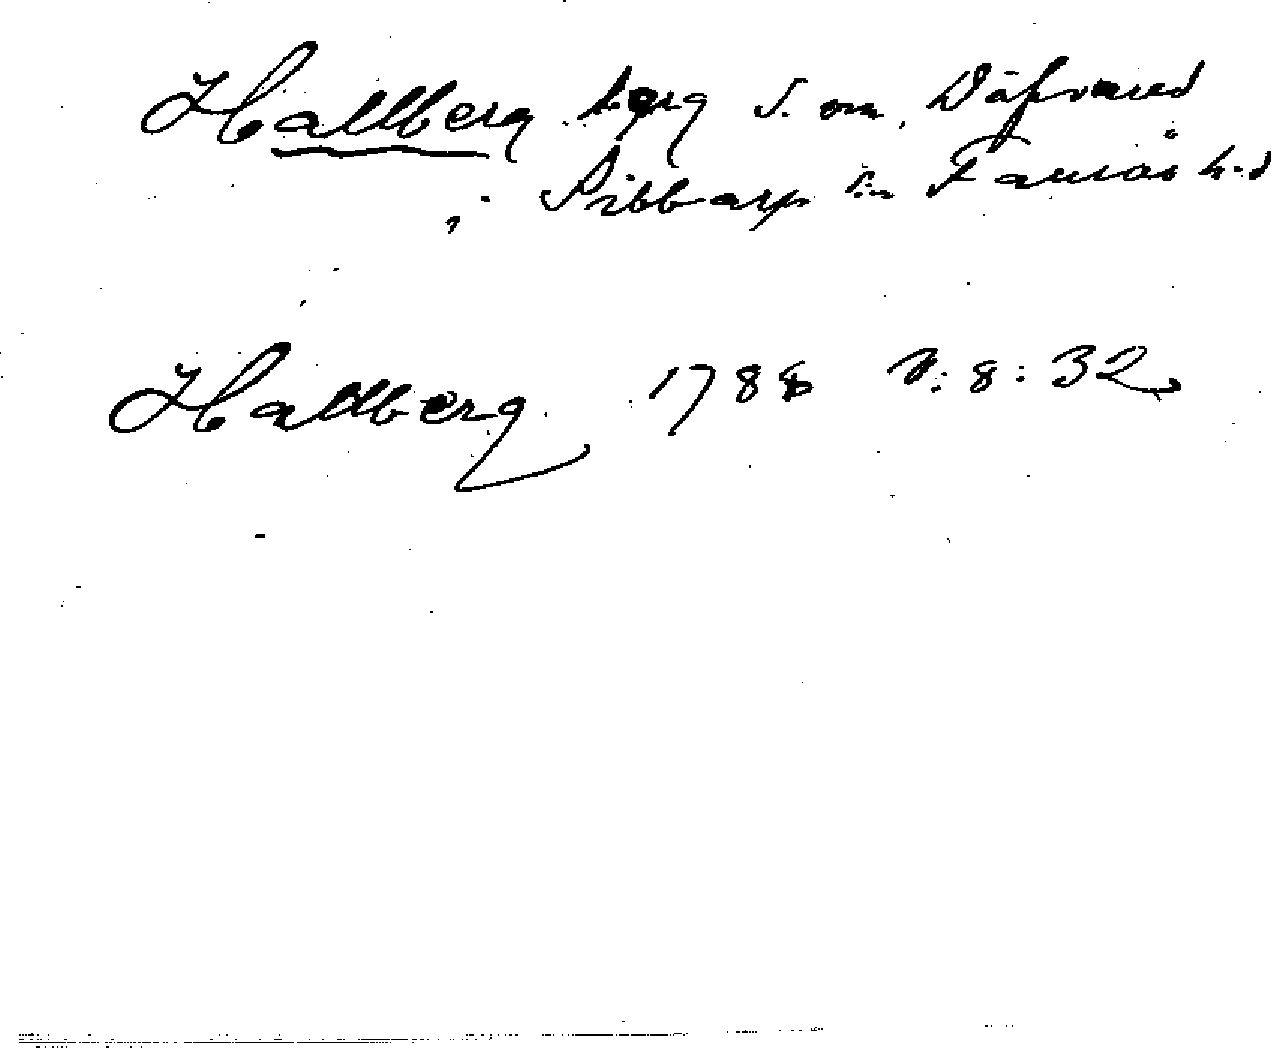 Hallberg berg S. om Däfvared
i Sibbarp sn Faurås h-d
Hallberg 1788 N: 8: 32